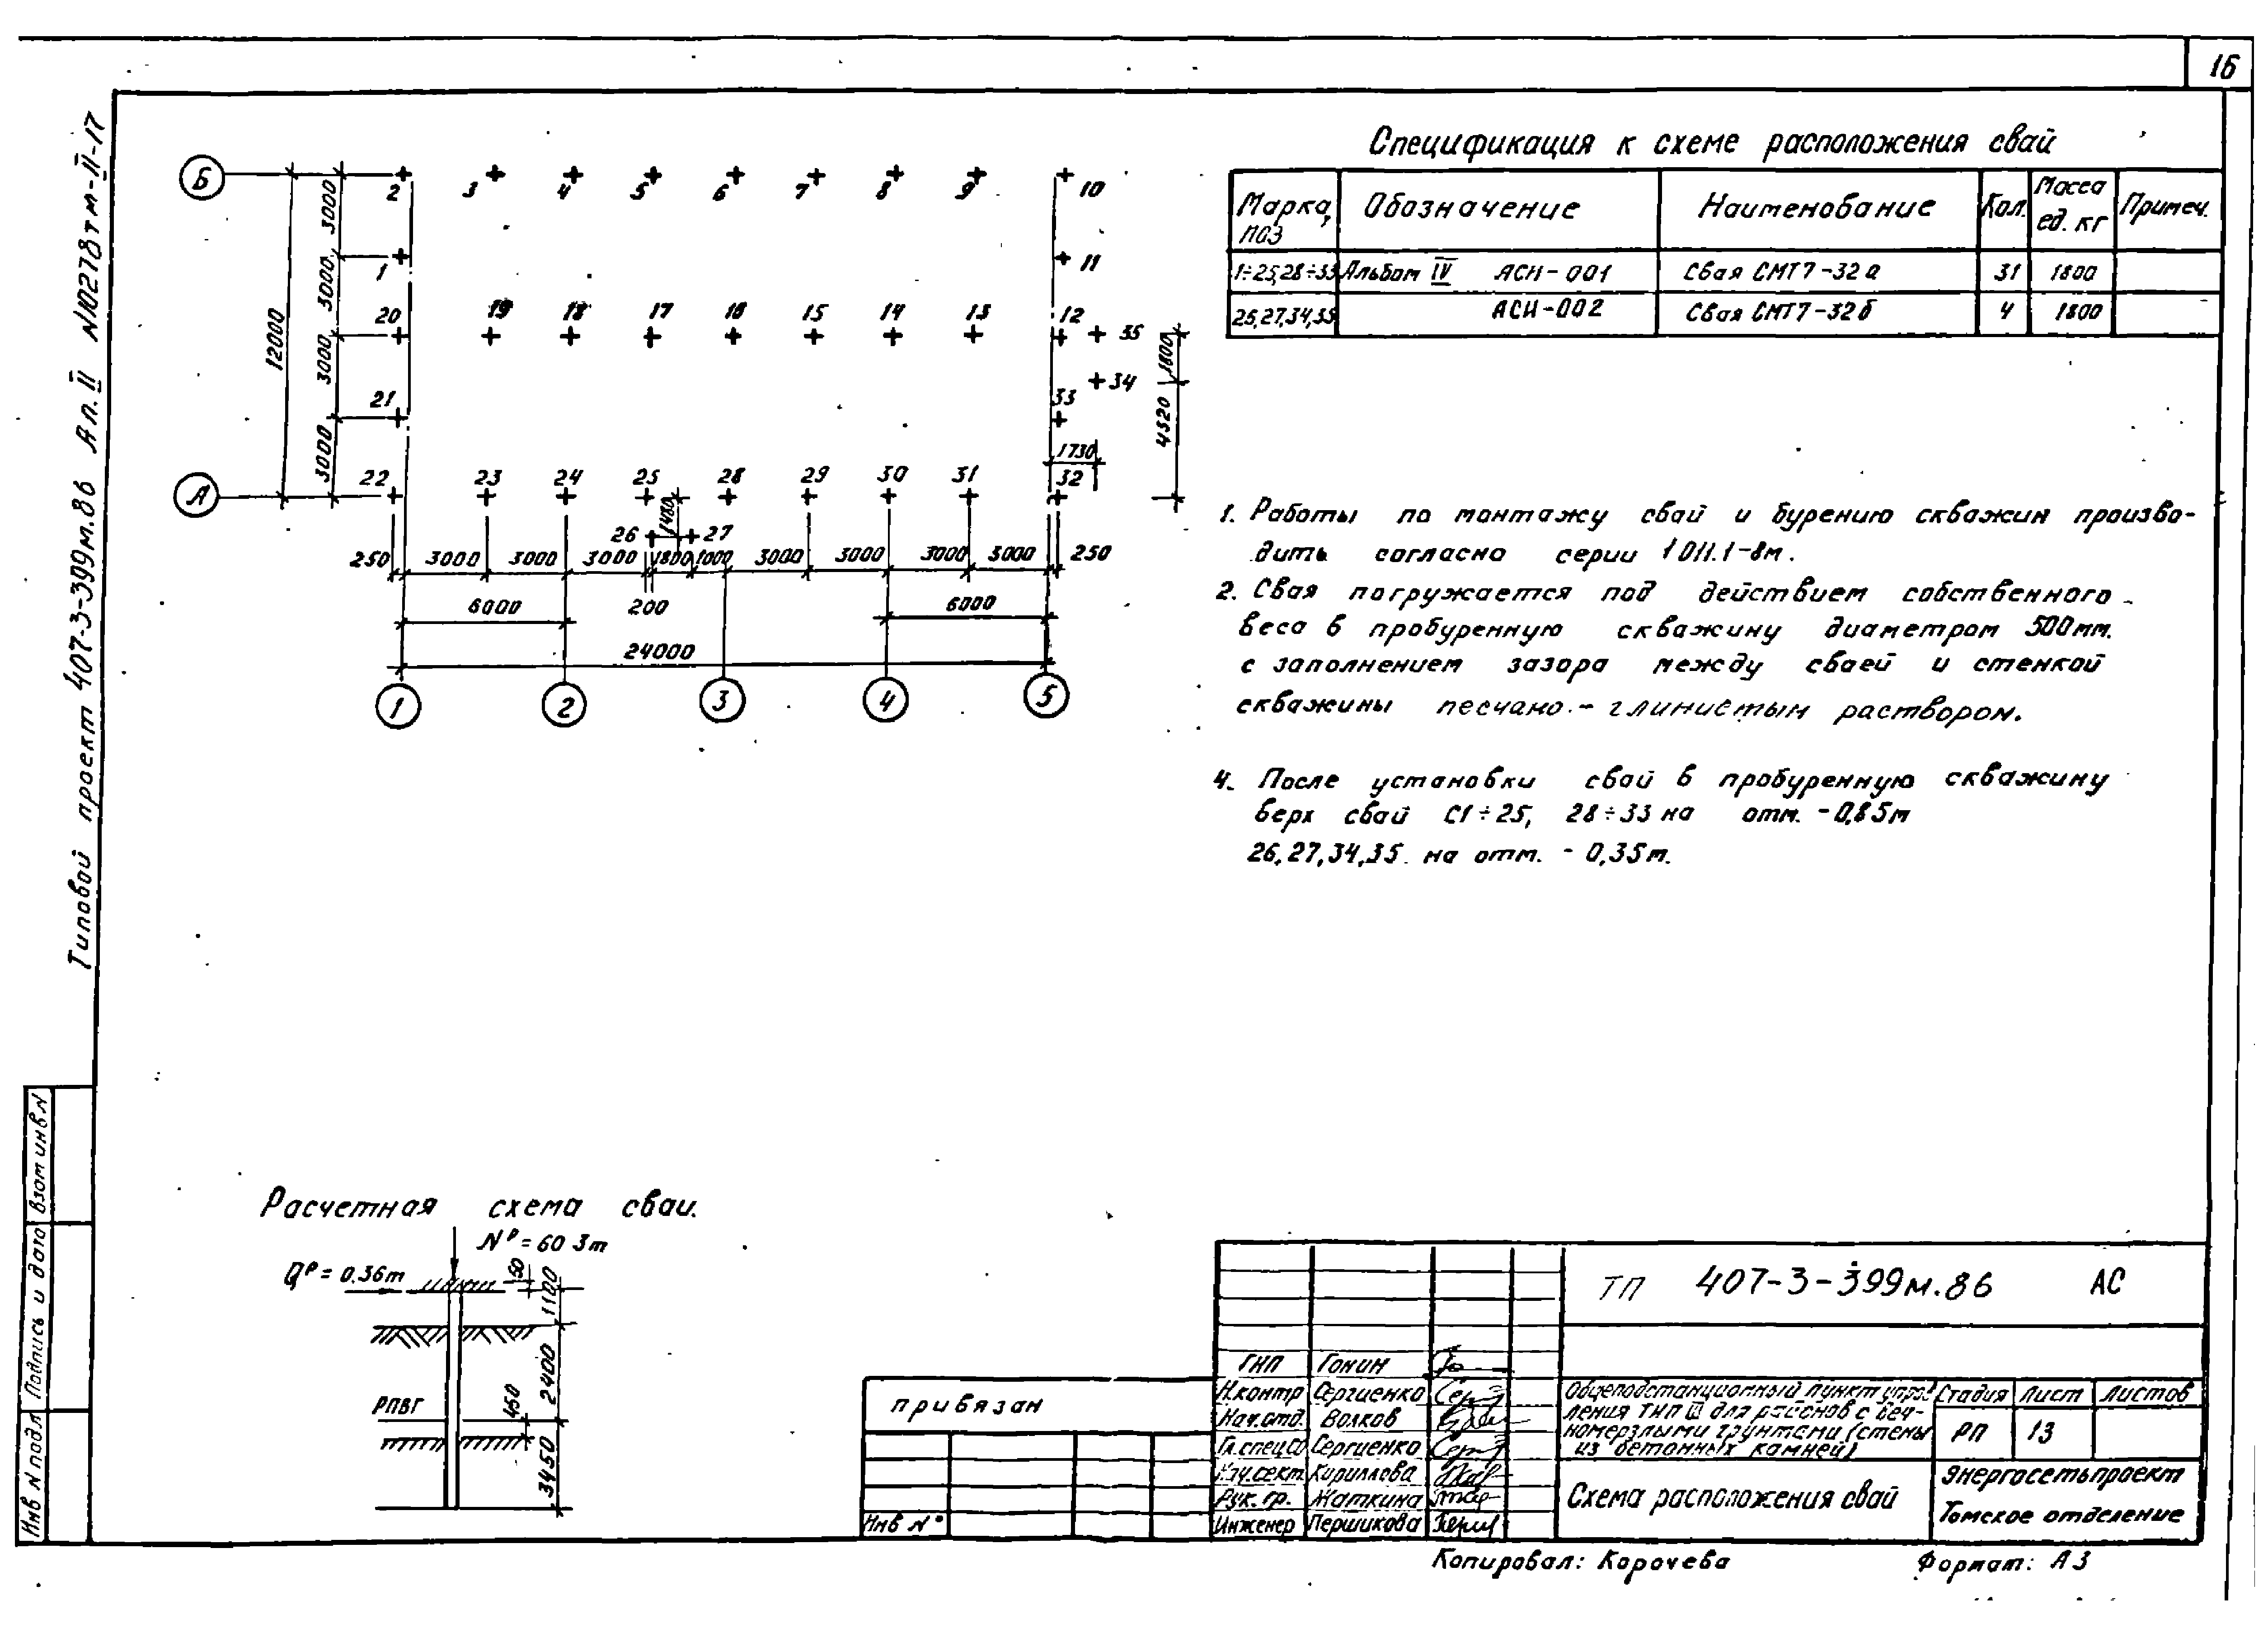 16
Типовой проект 407-3-399м.86 Ал. II N10278тм-II-17
Б
2 3 4 5 6 7 8 9 10
1 11
20 19 18 17 16 15 14 13 12 35
34
21 33
22 23 24 25 28 29 30 31 32
26 27
А
12000
3000 3000 3000 3000
1800
4520
1730
1480
250 3000 3000 3000 1800 1000 3000 3000 3000 3000 250
6000 200 6000
24000
1 2 3 4 5
Спецификация к схеме расположения свай
Марка, поз Обозначение Наименование Кол. Масса ед. кг Примеч.
1÷25,28÷33 Альбом IV АСИ-001 Свая СМТ7-32а 31 1800
26,27,34,35 АСИ-002 Свая СМТ7-32б 4 1800
1. Работы по монтажу свай и бурению скважин произво-
дить согласно серии 1 011.1-8м.
2. Свая погружается под действием собственного
веса в пробуренную скважину диаметром 500мм.
с заполнением зазора между сваей и стенкой
скважины песчано-глинистым раствором.
4. После установки свай в пробуренную скважину
верх свай С1÷25, 28÷33 на отм. -0,85м
26,27,34,35. на отм. - 0,35м.
Расчетная схема сваи.
Nᵖ = 60 3т
Qᵖ = 0.36т
50
1100
2400
РПВГ
450
3450
Взам инв.N
Подпись и дата
Инв N подл
привязан
Инв N°
ТП 407-3-399м.86 АС
ГИП Гонин
Н.контр Сергиенко
Нач.отд. Волков
Гл.спец Сергиенко
Нач.сект. Кириллова
Рук. гр. Жаткина
Инженер Першикова
Общеподстанционный пункт управ-
ления тип III для районов с веч-
номерзлыми грунтами (стены
из бетонных камней)
Стадия Лист Листов
РП 13
Схема расположения свай
Энергосетьпроект
Томское отделение
Копировал: Корочева Формат: А3